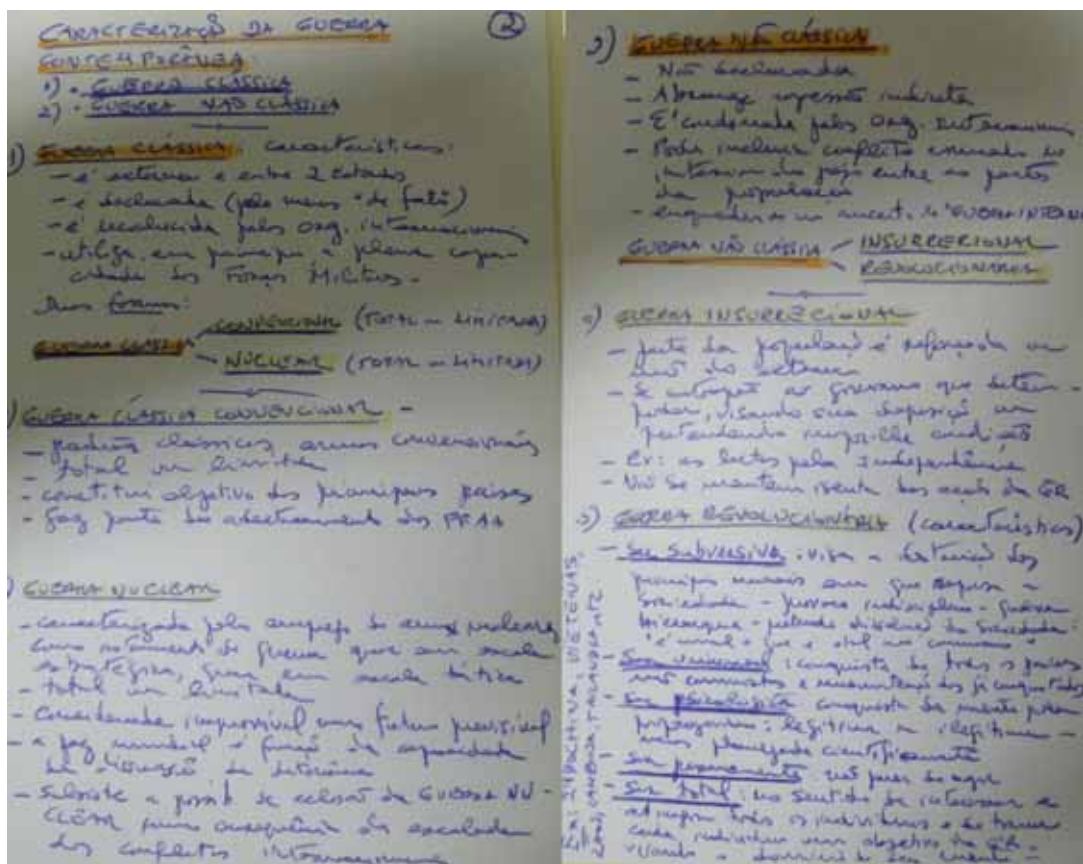 CARACTERIZAÇÃO DA GUERRA
②
CONTEMPORÂNEA:
1) - GUERRA CLÁSSICA
2) - GUERRA NÃO CLÁSSICA
1) GUERRA CLÁSSICA: características:
- é externa e entre 2 Estados
- é declarada (pelo menos "de fato")
- é reconhecida pelos org. internacionais
- utiliza, em princípio a plena capa-
cidade das Forças Militares.
Duas formas:
GUERRA CLÁSSICA
CONVENCIONAL (TOTAL ou LIMITADA)
NUCLEAR (TOTAL ou LIMITADA)
GUERRA CLÁSSICA CONVENCIONAL -
- padrões clássicos, armas convencionais
- total ou limitada
- constitui objetivo dos principais países
- faz parte do adestramento das FFAA
GUERRA NUCLEAR
- caracterizada pelo emprego de armas nucleares
como instrumento de guerra quer em escala
estratégica, quer em escala tática
- total ou limitada
- Considerada impossível num futuro previsível
- a paz mundial é função da capacidade
de dissuasão
- Subsiste a possib. de eclosão da GUERRA NU-
CLEAR como consequência da escalada
dos conflitos internacionais
2) GUERRA NÃO CLÁSSICA
- Não declarada
- Abrange agressão indireta
- É condenada pelos org. internacionais
- Pode incluir conflito armado no
interior do país entre as partes
da população
- enquadra-se no conceit. de "GUERRA INTERNA"
GUERRA NÃO CLÁSSICA
INSURRECIONAL
REVOLUCIONÁRIA
a) GUERRA INSURRECIONAL
- parte da população é reforçada ou
não do exterior
- Se contrapõe ao governo que detém
poder, visando sua deposição, ou
pretendendo
- Ex: as lutas pela independência
- Não se mantém isenta das da GR
b) GUERRA REVOLUCIONÁRIA (características)
- Ser subversiva: visa a destruição dos
princípios morais em que repousa a
sociedade - provoca indisciplina - quebra
hierarquia - pretende da sociedade:
"é moral o que é útil ao comunismo"
- Ser universal: conquista de todos os países
não comunistas e manutenção dos já conquistados
- Ser psicológica: conquista da mente pela
propaganda: legítima ou ilegítima -
mas planejada cientificamente
- Ser permanente
- Ser total: no sentido de interessar e
atingir todos os indivíduos e de tornar
cada indivíduo um objetivo da GR -
visando o domínio
VIETNAS,
LAOS, CAMBODJA, TAILANDIA, ETC